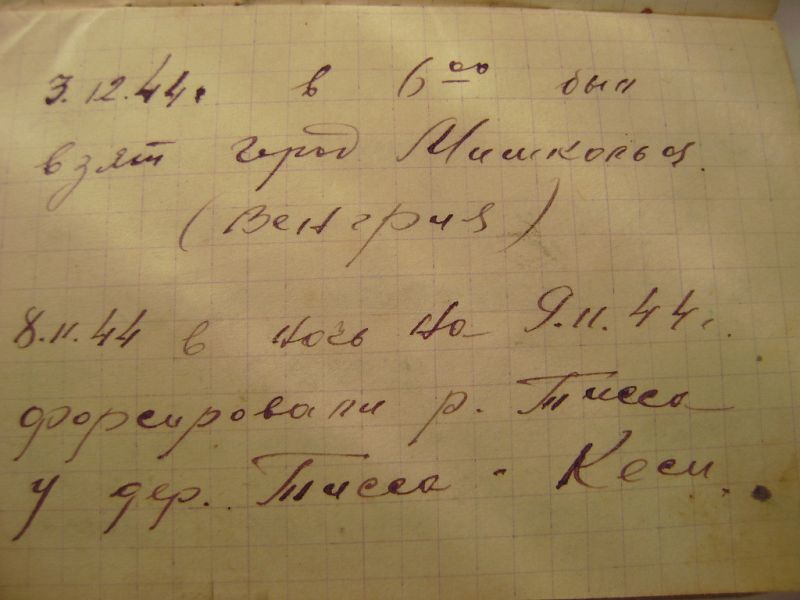 3.12.44г. в 6⁰⁰ был
взят город Мишкольц
(Венгрия)
8.11.44 в ночь на 9.11.44г.
форсировали р. Тисса
у дер. Тисса - Кеси.